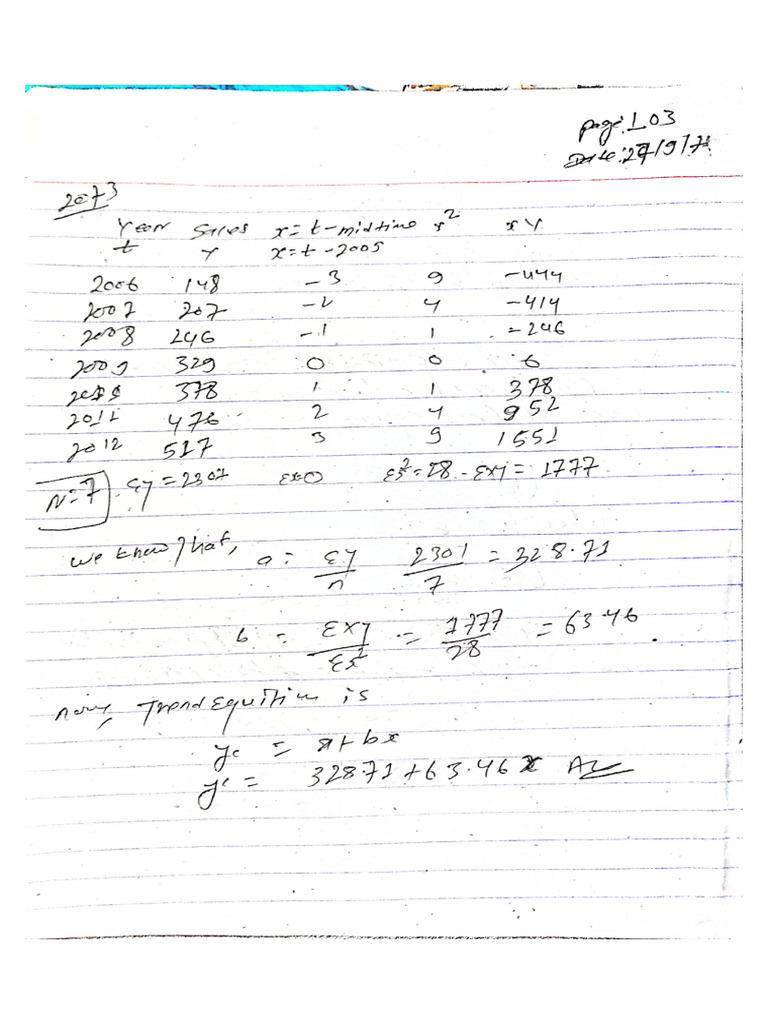 page: 103
Date: 27/9/71
2073
Year Sales x = t - midtime x² xy
t Y x = t - 2005
2006 148 -3 9 -444
2007 207 -2 4 -414
2008 246 -1 1 -246
2009 329 0 0 0
378 1 1 378
2011 476 2 4 952
2012 517 3 9 1551
N=7 Σy = 2307 Σx=0 Σx² = 28 - Σxy = 1777
we know that, a = Σy/n 2301/7 = 328.71
b = Σxy/Σx² = 1777/28 = 63.46
now, Trend Equition is
yc = a + bx
yc = 328.71 + 63.46 x